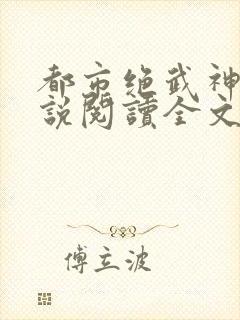 都市绝武神
說閱讀全文
傅立波